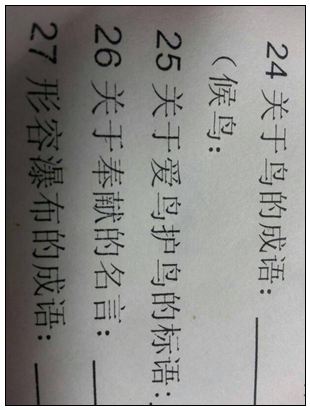 24 关于鸟的成语:
(候鸟:
25 关于爱鸟护鸟的标语:
26 关于奉献的名言:
27 形容瀑布的成语: